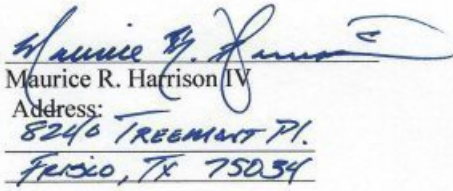 Maurice R. Harrison
Maurice R. Harrison IV
Address:
8240 TREEMONT Pl.
FRISCO, TX 75034